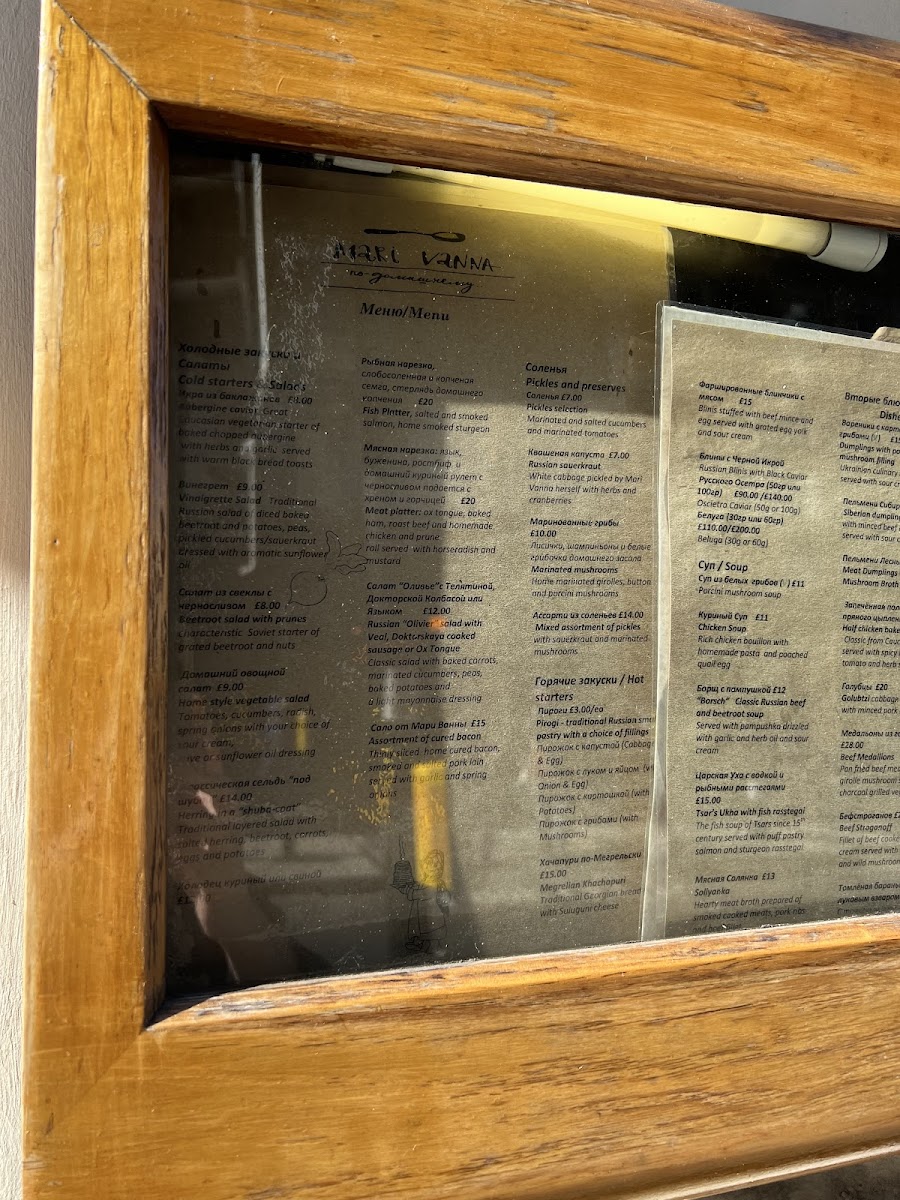 MARI VANNA
по-домашнему
Меню/Menu
Холодные закуски и
Салаты
Cold starters & Salads
Икра из баклажанов £8.00
Aubergine caviar. Great
Caucasian vegetarian starter of
baked chopped aubergine
with herbs and garlic served
with warm black bread toasts
Винегрет £9.00
Vinaigrette Salad Traditional
Russian salad of diced baked
beetroot and potatoes, peas,
pickled cucumbers/sauerkraut
dressed with aromatic sunflower
oil
Салат из свеклы с
черносливом £8.00
Beetroot salad with prunes
Characteristic Soviet starter of
grated beetroot and nuts
Домашний овощной
салат £9.00
Home style vegetable salad
Tomatoes, cucumbers, radish,
spring onions with your choice of
sour cream,
or sunflower oil dressing
сельдь "под
£14.00
Herring in a "shuba-coat"
Traditional layered salad with
salted herring, beetroot, carrots,
eggs and potatoes
Холодец куриный или свиной
Рыбная нарезка,
слабосоленая и копченая
семга, стерлядь домашнего
копчения £20
Fish Platter, salted and smoked
salmon, home smoked sturgeon
Мясная нарезка: язык,
буженина, ростбиф и
домашний куриный рулет с
черносливом подается с
хреном и горчицей £20
Meat platter: ox tongue, baked
ham, roast beef and homemade
chicken and prune
roll served with horseradish and
mustard
Салат "Оливье" с Телятиной,
Докторской Колбасой или
Языком £12.00
Russian "Olivier" salad with
Veal, Doktorskaya cooked
sausage or Ox Tongue
Classic salad with baked carrots,
marinated cucumbers, peas,
baked potatoes and
a light mayonnaise dressing
Сало от Мари Ванны £15
Assortment of cured bacon
Thinly sliced home cured bacon,
smoked and pork loin
served with garlic and spring
onions
Соленья
Pickles and preserves
Соленья £7.00
Pickles selection
Marinated and salted cucumbers
and marinated tomatoes
Квашеная капуста £7.00
Russian sauerkraut
White cabbage pickled by Mari
Vanna herself with herbs and
cranberries
Маринованные грибы
£10.00
Лисички, шампиньоны и белые
грибочки домашнего засола
Marinated mushrooms
Home marinated girolles, button
and porcini mushrooms
Ассорти из соленьев £14.00
Mixed assortment of pickles
with sauerkraut and marinated
mushrooms
Горячие закуски / Hot
starters
Пироги £3.00/ea
Pirogi - traditional Russian
pastry with a choice of fillings
Пирожок с капустой (Cabbag
& Egg)
Пирожок с луком и яйцом
Onion & Egg)
Пирожок с картошкой (with
Potatoes)
Пирожок с грибами (with
Mushrooms)
Хачапури по-Мегрельски
£15.00
Megrelian Khachapuri
Traditional Georgian bread
with Suluguni cheese
Фаршированные блинчики с
мясом £15
Blinis stuffed with beef mince and
egg served with grated egg yolk
and sour cream
Блины с Черной Икрой
Russian Blinis with Black Caviar
Русского Осетра (50гр или
100гр) £90.00/£140.00
Oscietra Caviar (50g or 100g)
Белуга (30гр или 60гр)
£110.00/£200.00
Beluga (30g or 60g)
Суп / Soup
Суп из белых грибов £11
Porcini mushroom soup
Куриный Суп £11
Chicken Soup
Rich chicken bouillon with
homemade pasta and poached
quail egg
Борщ с пампушкой £12
"Borsch" Classic Russian beef
and beetroot soup
Served with pampushka drizzled
with garlic and herb oil and sour
cream
Царская Уха с водкой и
рыбными расстегаями
£15.00
Tsar's Ukha with fish rasstegai
The fish soup of Tsars since 15th
century served with puff pastry
salmon and sturgeon rasstegai
Мясная Солянка £13
Solyanka
Hearty meat broth prepared of
smoked cooked meats, pork ribs
Вторые блю
Dish
Вареники с карт
грибами £15
Dumplings with po
mushroom filling
Ukrainian culinary
served with sour c
Пельмени Сибир
Siberian dumpling
with minced beef
served with sour
Пельмени Лесн
Meat Dumplings
Mushroom Broth
Запечённая пол
пряного цыплен
Half chicken bake
Classic from Cauc
served with spicy
tomato and herb
Голубцы £20
Golubtzi cabbage
with minced pork
Медальоны из го
£28.00
Beef Medallions
Pan fried beef me
girolle mushroom
charcoal grilled ve
Бефстроганов £
Beef Stroganoff
Fillet of beef
cream served with
and wild mushroom
Томлёная барань
луковым взваром